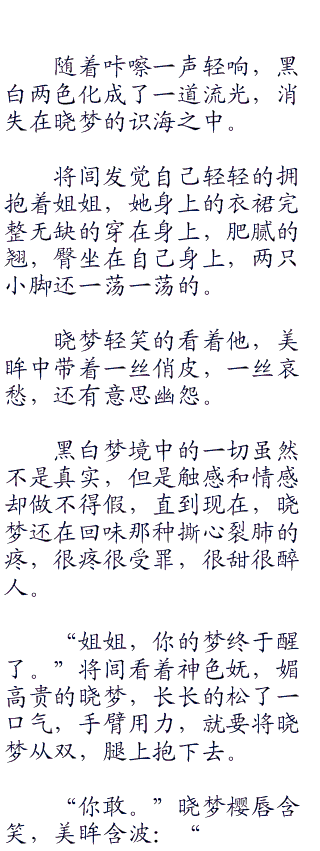 随着咔嚓一声轻响，黑
白两色化成了一道流光，消
失在晓梦的识海之中。
将闾发觉自己轻轻的拥
抱着姐姐，她身上的衣裙完
整无缺的穿在身上，肥腻的
翘，臀坐在自己身上，两只
小脚还一荡一荡的。
晓梦轻笑的看着他，美
眸中带着一丝俏皮，一丝哀
愁，还有意思幽怨。
黑白梦境中的一切虽然
不是真实，但是触感和情感
却做不得假，直到现在，晓
梦还在回味那种撕心裂肺的
疼，很疼很受罪，很甜很醉
人。
“姐姐，你的梦终于醒
了。”将闾看着神色妩，媚
高贵的晓梦，长长的松了一
口气，手臂用力，就要将晓
梦从双，腿上抱下去。
“你敢。”晓梦樱唇含
笑，美眸含波：“